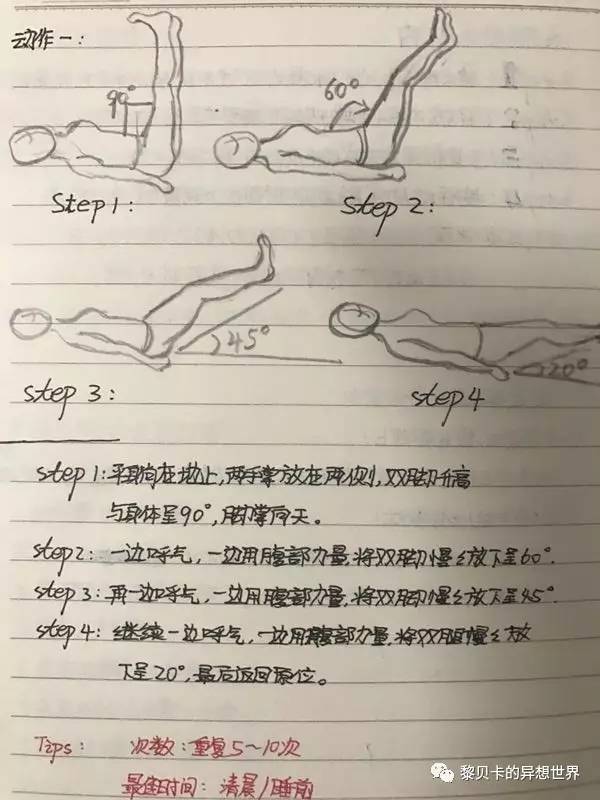 动作一:
90°
60°
step 1:
step 2:
45°
20°
step 3:
step 4
step 1:平躺在地上,两手掌放在两侧,双脚升高
与身体呈90°,脚掌向天。
step 2:一边呼气,一边用腹部力量,将双脚慢慢放下呈60°.
step 3:再一边呼气,一边用腹部力量,将双脚慢慢放下呈45°.
step 4:继续一边呼气,一边用腹部力量,将双腿慢慢放
下呈20°,最后返回原位。
Tips: 次数:重复5~10次
最佳时间:清晨/睡前
黎贝卡的异想世界